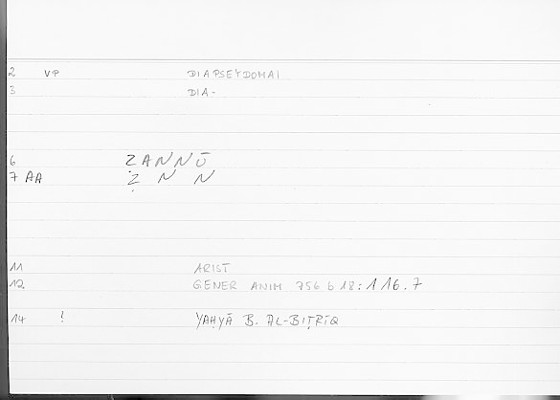 2 VP DIAPSEYDOMAI
3 DIA-
6 ẒANNŪ
7 AA Ẓ N N
11 ARIST
12 GENER ANIM 756 b 18: 116.7
14 ! YAḤYĀ B. AL-BIṬRĪQ